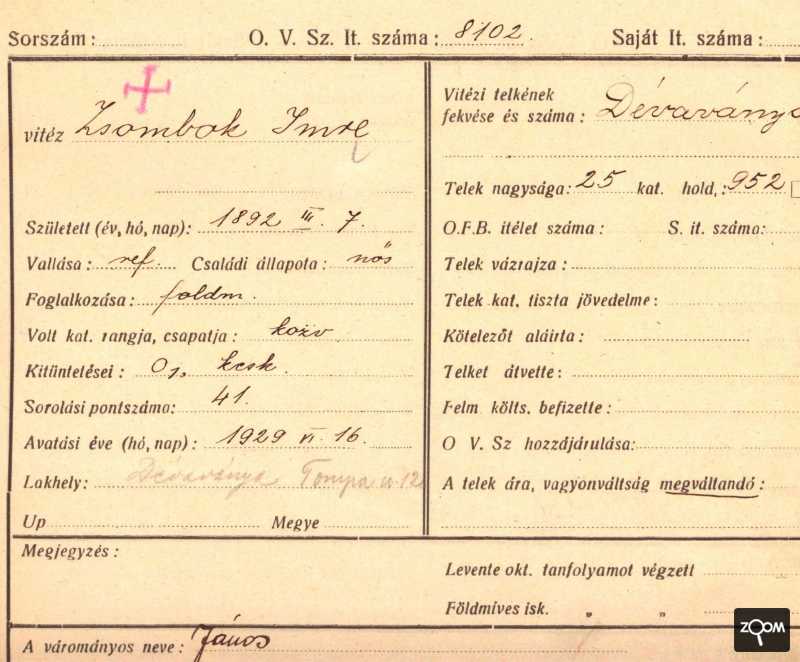 Sorszám: O. V. Sz. It. száma: 8102. Saját It. száma:
vitéz Zsombok Imre
Született (év, hó, nap): 1892 III. 7.
Vallása: ref. Családi állapota: nős
Foglalkozása: földm.
Volt kat. rangja, csapatja:
Kitüntetései: O1, kcsk.
Sorolási pontszáma: 41.
Avatási éve (hó, nap): 1929 VI. 16.
Lakhely: Dévaványa Tompa u. 12
Up Megye
Vitézi telkének
fekvése és száma: Dévaványa
Telek nagysága: 25 kat. hold,: 952
O.F.B. itélet száma: S. it. száma:
Telek vázrajza:
Telek kat. tiszta jövedelme:
Kötelezőt aláirta:
Telket átvette:
Felm költs. befizette:
O V. Sz hozzájárulása:
A telek ára, vagyonváltság megváltandó:
Megjegyzés:
Levente okt. tanfolyamot végzett
Földmíves isk. „ „
A várományos neve: János
ZOOM